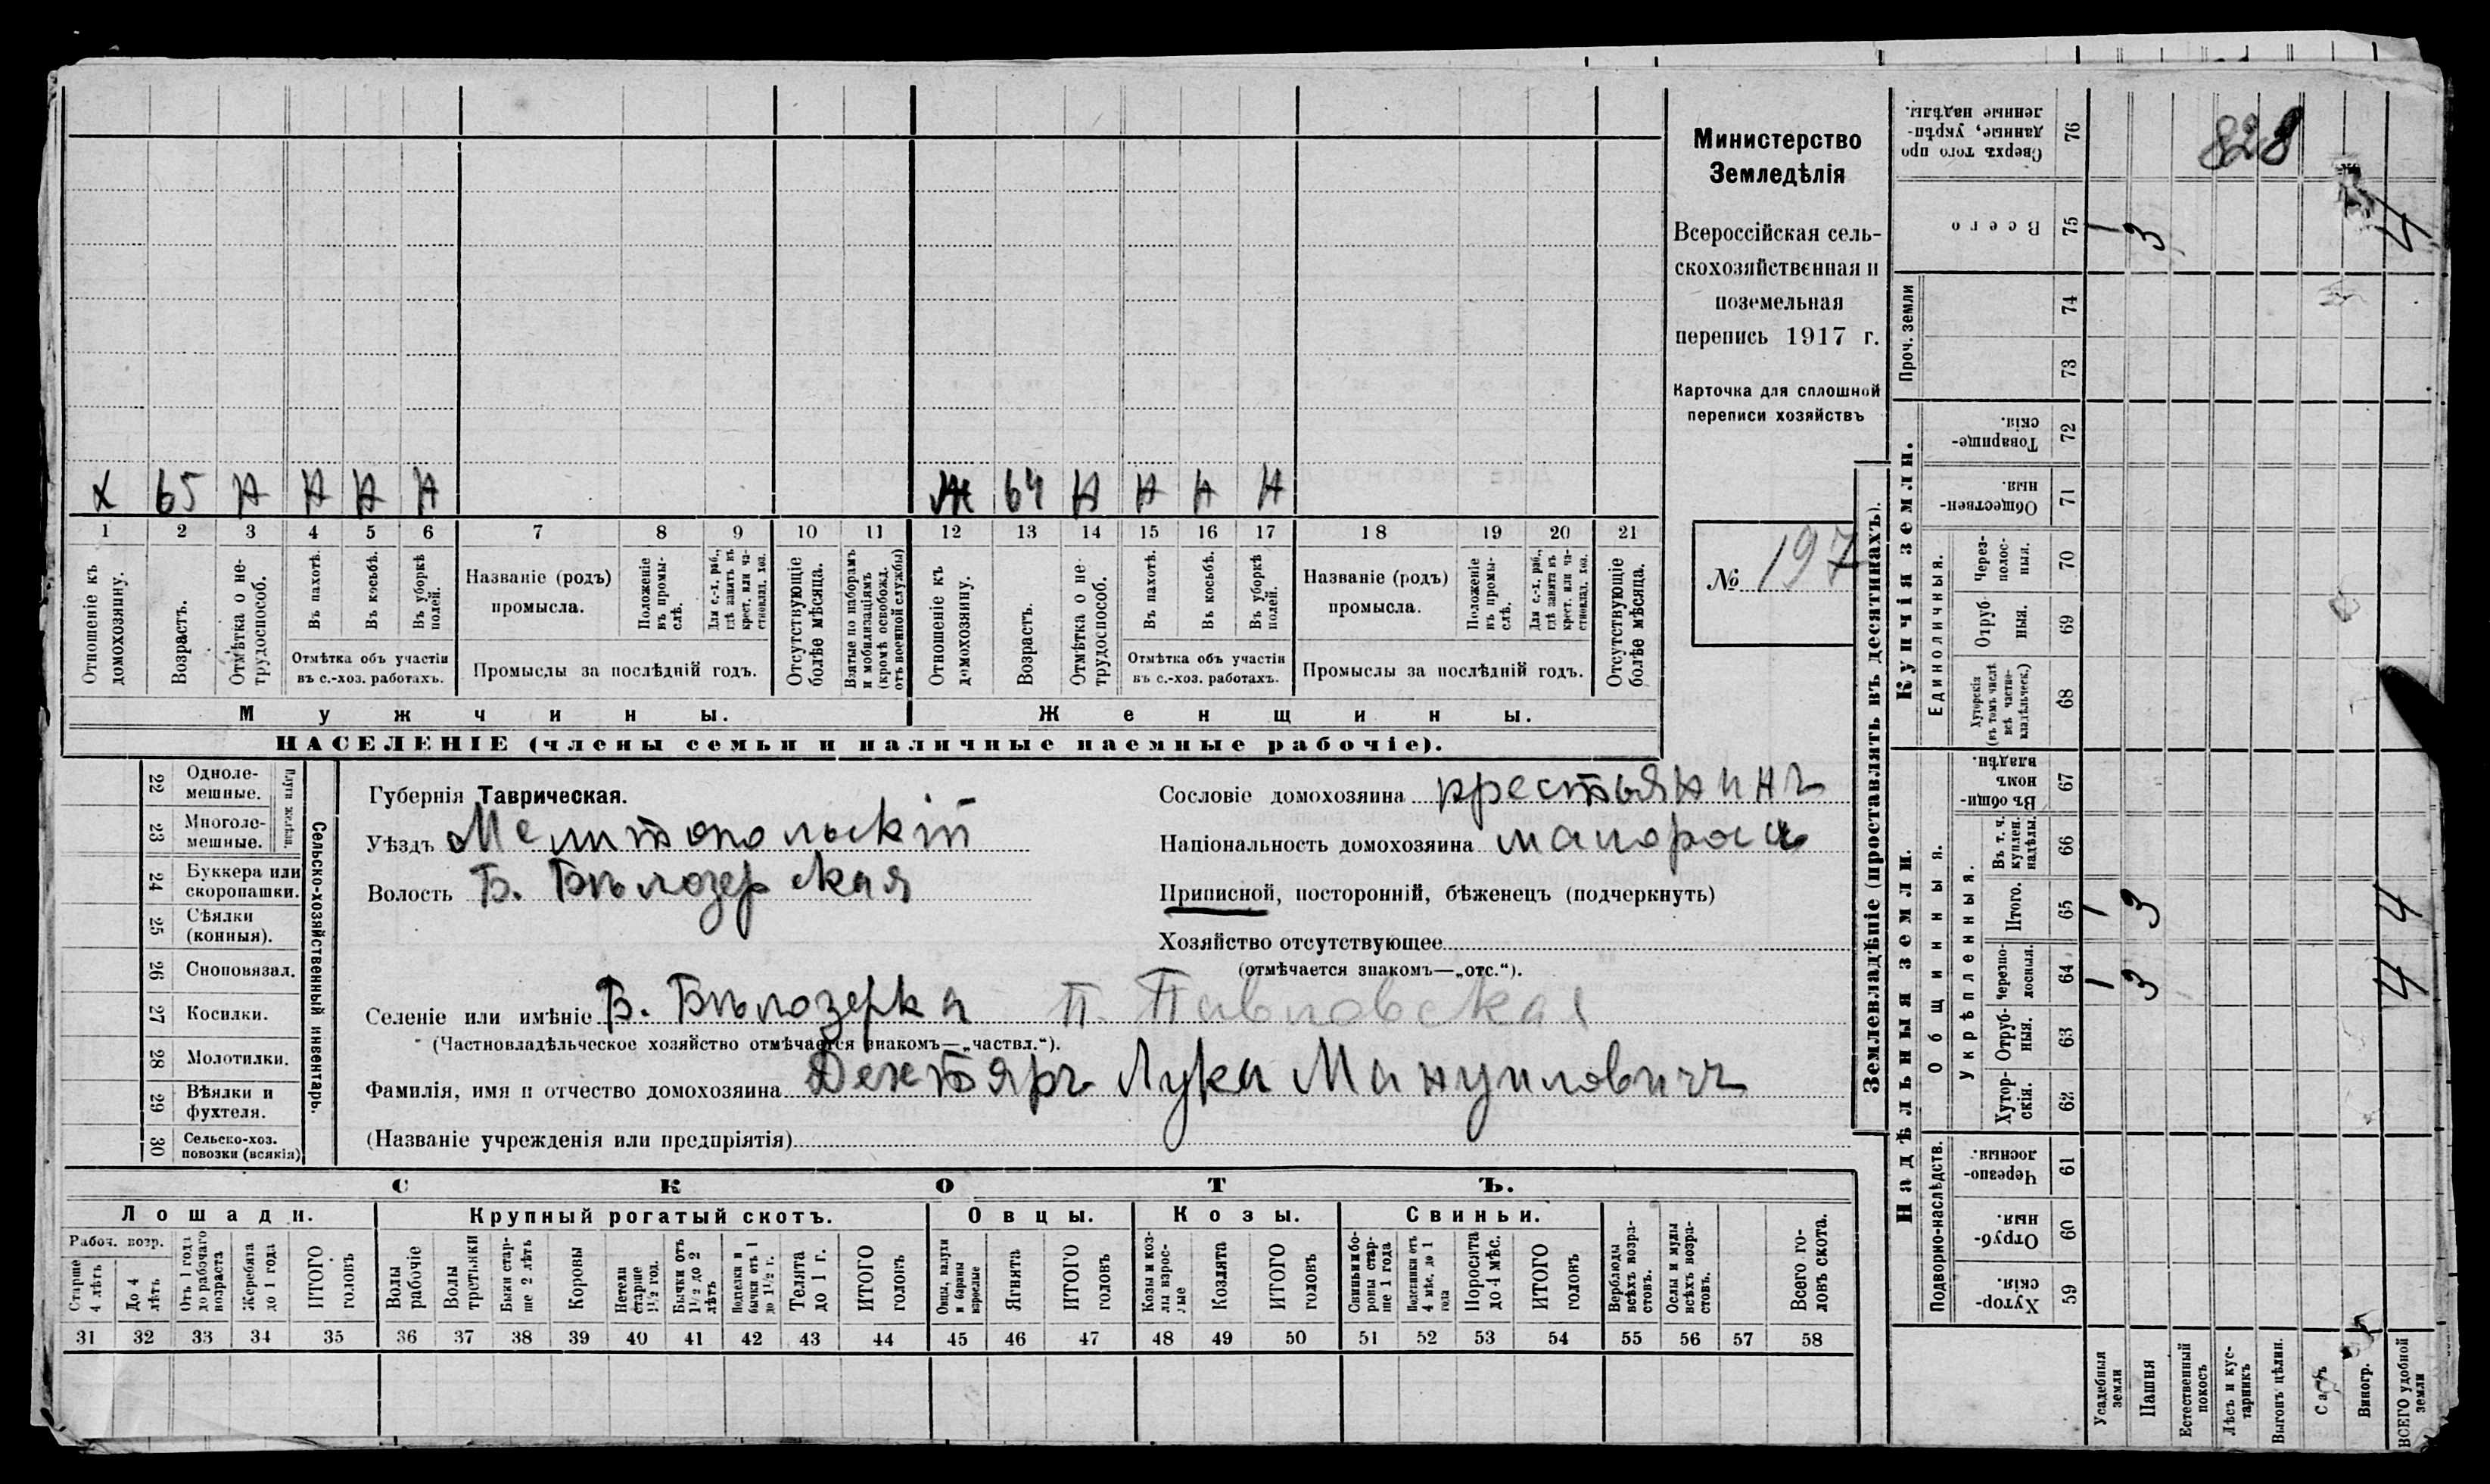 Х 65 Н Н Н Н Ж 64 Н Н Н Н
1 2 3 4 5 6 7 8 9 10 11 12 13 14 15 16 17 18 19 20 21
Отношеніе къ домохозяину.
Возрастъ.
Отмѣтка о не-трудоспособ.
Въ пахотѣ.
Въ косьбѣ.
Въ уборкѣ полей.
Отмѣтка объ участіи
въ с.-хоз. работахъ.
Названіе (родъ)
промысла.
Положеніе въ промы-слѣ.
Для с.-х. раб., гдѣ занятъ въ крест. или ча-стновлад. хоз.
Промыслы за послѣдній годъ.
Отсутствующіе болѣе мѣсяца.
Взятые по наборамъ и мобилизаціямъ (кромѣ освобожд. отъ военной службы)
Отношеніе къ домохозяину.
Возрастъ.
Отмѣтка о не-трудоспособ.
Въ пахотѣ.
Въ косьбѣ.
Въ уборкѣ полей.
Отмѣтка объ участіи
въ с.-хоз. работахъ.
Названіе (родъ)
промысла.
Положеніе въ промы-слѣ.
Для с.-х. раб., гдѣ занята въ крест. или ча-стновлад. хоз.
Промыслы за послѣдній годъ.
Отсутствующіе болѣе мѣсяца.
Мужчины. Женщины.
НАСЕЛЕНІЕ (члены семьи и наличные наемные рабочіе).
Министерство
Земледѣлія
Всероссійская сель-
скохозяйственная и
поземельная
перепись 1917 г.
Карточка для сплошной
переписи хозяйствъ
№ 197
22 Одноле-мешные.
23 Многоле-мешные.
Плуги желѣзн.
24 Буккера или скоропашки.
25 Сѣялки (конныя).
26 Сноповязал.
27 Косилки.
28 Молотилки.
29 Вѣялки и фухтеля.
30 Сельско-хоз. повозки (всякія)
Сельско-хозяйственный инвентарь.
Губернія Таврическая.
Уѣздъ Мелитопольскій
Волость Б. Бѣлозерская
Сословіе домохозяина крестьянинъ
Національность домохозяина малоросъ
Приписной, посторонній, бѣженецъ (подчеркнуть)
Хозяйство отсутствующее
(отмѣчается знакомъ—„отс.“).
Селеніе или имѣніе Б. Бѣлозерка П. Павловская
(Частновладѣльческое хозяйство отмѣчается знакомъ—„частвл.“).
Фамилія, имя и отчество домохозяина Дехтяръ Лука Мануиловичъ
(Названіе учрежденія или предпріятія)
СКОТЪ.
Лошади. Крупный рогатый скотъ. Овцы. Козы. Свиньи.
Рабоч. возр.
Старше 4 лѣтъ
До 4 лѣтъ
Отъ 1 года до рабочаго возраста
Жеребята до 1 года
ИТОГО головъ
Волы рабочіе
Волы третьяки
Быки стар-ше 2 лѣтъ
Коровы
Нетели старше 1½ год.
Бычки отъ 1½ до 2 лѣтъ
Подтелки и бычки отъ 1 до 1½ г.
Телята до 1 г.
ИТОГО головъ
Овцы, валухи и бараны взрослые
Ягнята
ИТОГО головъ
Козы и коз-лы взрос-лые
Козлята
ИТОГО головъ
Свиньи и бо-ровы стар-ше 1 года
Подсвинки отъ 4 мѣс. до 1 года
Поросята до 4 мѣс.
ИТОГО головъ
Верблюды всѣхъ возра-стовъ.
Ослы и мулы всѣхъ возра-стовъ.
Всего го-ловъ скота.
31 32 33 34 35 36 37 38 39 40 41 42 43 44 45 46 47 48 49 50 51 52 53 54 55 56 57 58
Землевладѣніе (проставлять въ десятинахъ).
828
Сверхъ того про-данные, укрѣп-ленные надѣлы. 76
Всего 75 1 3 4
Проч. земли 74
73
Купчія земли.
Товарище-скія. 72
Обществен-ныя. 71
Единоличныя.
Через-полос-ныя. 70
Отруб-ныя. 69
Хуторскія (въ томъ числѣ всѣ частно-владѣльческ.) 68
Надѣльныя земли.
Общинныя.
Въ общи-номъ владѣн. 67
Укрѣпленныя.
Въ т. ч. куплен. надѣлы. 66
Итого. 65 1 3 4
Черезпо-лосныя. 64 1 3 4
Отруб-ныя. 63
Хутор-скія. 62
Подворно-наслѣдств.
Черезпо-лосныя. 61
Отруб-ныя. 60
Хутор-скія. 59
Усадебныя земли
Пашня
Естественный покосъ
Лѣсъ и кус-тарникъ
Выгонъ цѣлин.
Садъ
Виногр.
ВСЕГО удобной земли